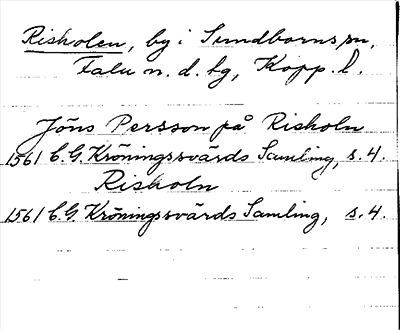 Risholen, by i Sundborns sn,
Falu n. d. tg, Kopp. l.
Jöns Persson på Risholn
1561 C. G. Kröningssvärds Samling, s. 4.
Risholn
1561 C. G. Kröningssvärds Samling, s. 4.